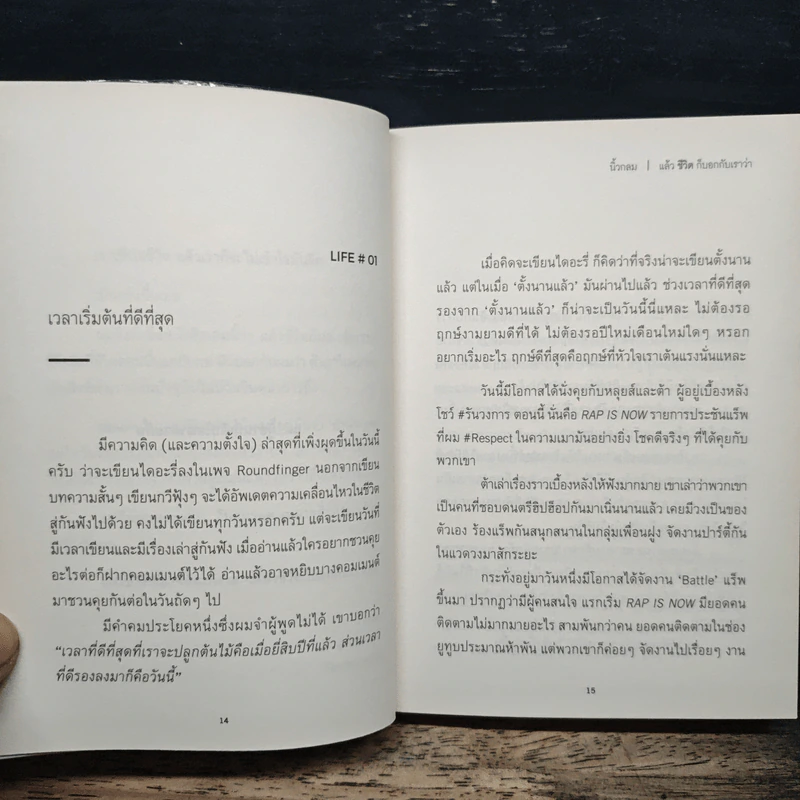 LIFE # 01
เวลาเริ่มต้นที่ดีที่สุด
มีความคิด (และความตั้งใจ) ล่าสุดที่เพิ่งผุดขึ้นในวันนี้
ครับ ว่าจะเขียนไดอะรี่ลงในเพจ Roundfinger นอกจากเขียน
บทความสั้นๆ เขียนกวีฟุ้งๆ จะได้อัพเดตความเคลื่อนไหวในชีวิต
สู่กันฟังไปด้วย คงไม่ได้เขียนทุกวันหรอกครับ แต่จะเขียนวันที่
มีเวลาเขียนและมีเรื่องเล่าสู่กันฟัง เมื่ออ่านแล้วใครอยากชวนคุย
อะไรต่อก็ฝากคอมเมนต์ไว้ได้ อ่านแล้วอาจหยิบบางคอมเมนต์
มาชวนคุยกันต่อในวันถัดๆ ไป
มีคำคมประโยคหนึ่งซึ่งผมจำผู้พูดไม่ได้ เขาบอกว่า
“เวลาที่ดีที่สุดที่เราจะปลูกต้นไม้คือเมื่อยี่สิบปีที่แล้ว ส่วนเวลา
ที่ดีรองลงมาก็คือวันนี้”
14
นิ้วกลม | แล้ว ชีวิต ก็บอกกับเราว่า
เมื่อคิดจะเขียนไดอะรี่ ก็คิดว่าที่จริงน่าจะเขียนตั้งนาน
แล้ว แต่ในเมื่อ ‘ตั้งนานแล้ว’ มันผ่านไปแล้ว ช่วงเวลาที่ดีที่สุด
รองจาก ‘ตั้งนานแล้ว’ ก็น่าจะเป็นวันนี้นี่แหละ ไม่ต้องรอ
ฤกษ์งามยามดีที่ได้ ไม่ต้องรอปีใหม่เดือนใหม่ใดๆ หรอก
อยากเริ่มอะไร ฤกษ์ดีที่สุดคือฤกษ์ที่หัวใจเราเต้นแรงนั่นแหละ
วันนี้มีโอกาสได้นั่งคุยกับหลุยส์และต้า ผู้อยู่เบื้องหลัง
โชว์ #รันวงการ ตอนนี้ นั่นคือ RAP IS NOW รายการประชันแร็พ
ที่ผม #Respect ในความเมามันอย่างยิ่ง โชคดีจริงๆ ที่ได้คุยกับ
พวกเขา
ต้าเล่าเรื่องราวเบื้องหลังให้ฟังมากมาย เขาเล่าว่าพวกเขา
เป็นคนที่ชอบดนตรีฮิปฮ็อปกันมาเนิ่นนานแล้ว เคยมีวงเป็นของ
ตัวเอง ร้องแร็พกันสนุกสนานในกลุ่มเพื่อนฝูง จัดงานปาร์ตี้กัน
ในแวดวงมาสักระยะ
กระทั่งอยู่มาวันหนึ่งมีโอกาสได้จัดงาน ‘Battle’ แร็พ
ขึ้นมา ปรากฏว่ามีผู้คนสนใจ แรกเริ่ม RAP IS NOW มียอดคน
ติดตามไม่มากมายอะไร สามพันกว่าคน ยอดคนติดตามในช่อง
ยูทูบประมาณห้าพัน แต่พวกเขาก็ค่อยๆ จัดงานไปเรื่อยๆ งาน
15